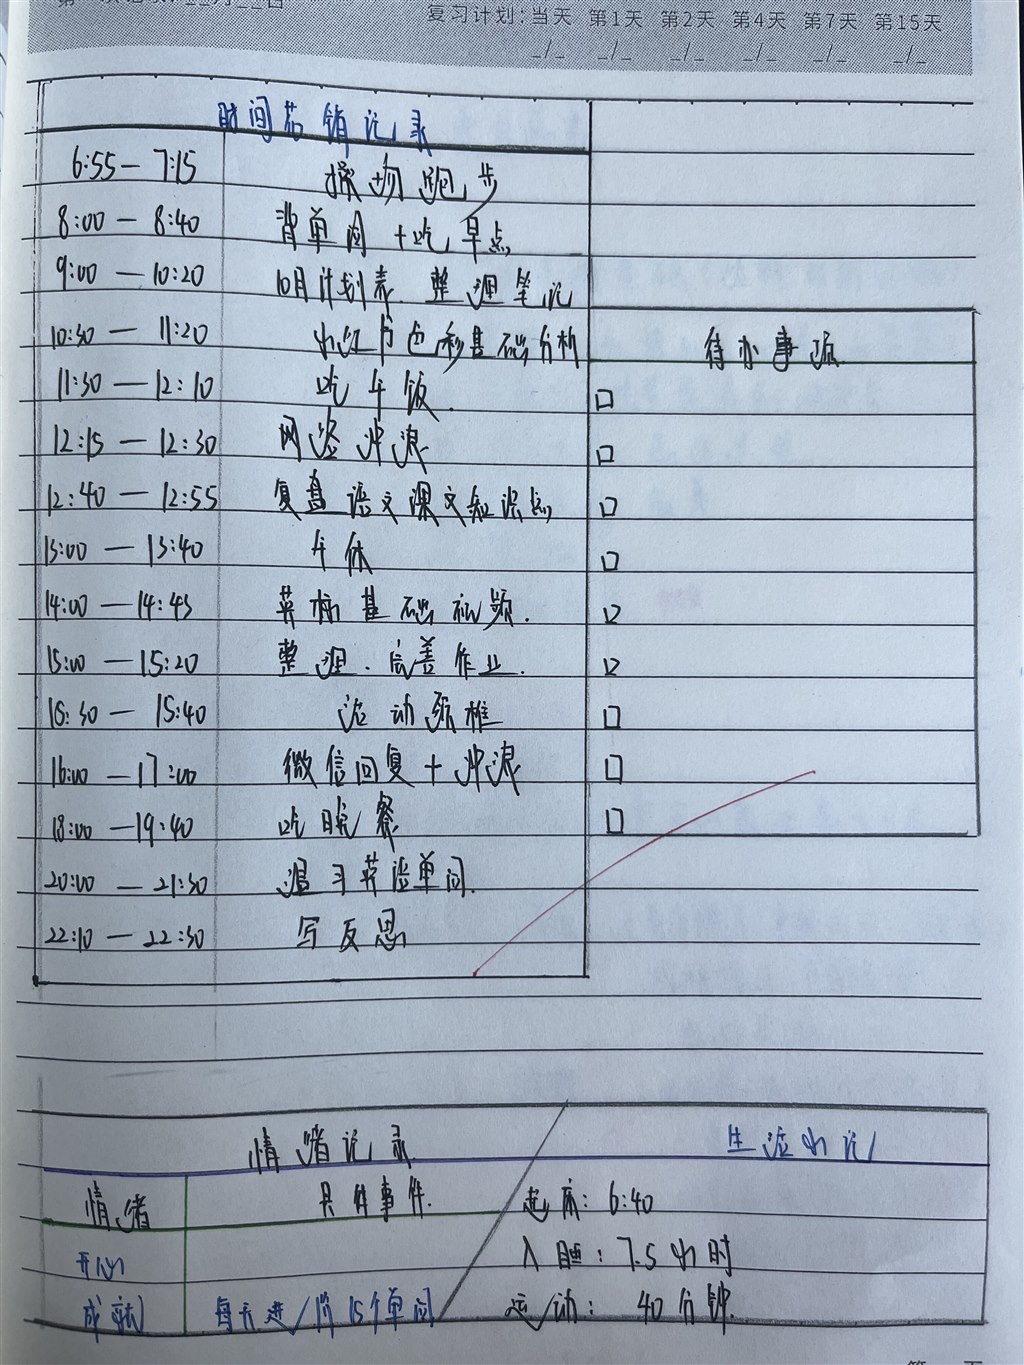 复习计划:当天 第1天 第2天 第4天 第7天 第15天
时间花销记录
6:55—7:15 操场跑步
8:00—8:40 背单词+吃早点
9:00—10:20 10月计划表.整理笔记
10:30—11:20 小红书色彩基础分析
11:30—12:10 吃午饭.
12:15—12:30 网络冲浪
12:40—12:55 复盘语文课文知识点
13:00—13:40 午休
14:00—14:45 英标基础视频.
15:00—15:20 整理.完善作业.
15:30—15:40 活动颈椎
16:00—17:00 微信回复+冲浪
18:00—19:40 吃晚餐
20:00—21:30 温习英语单词.
22:10—22:30 写反思
待办事项
情绪记录
情绪 具体事件.
开心
成就 每天进 阶15个单词
生活小记
起床: 6:40
入睡: 7.5小时
运动: 40分钟.